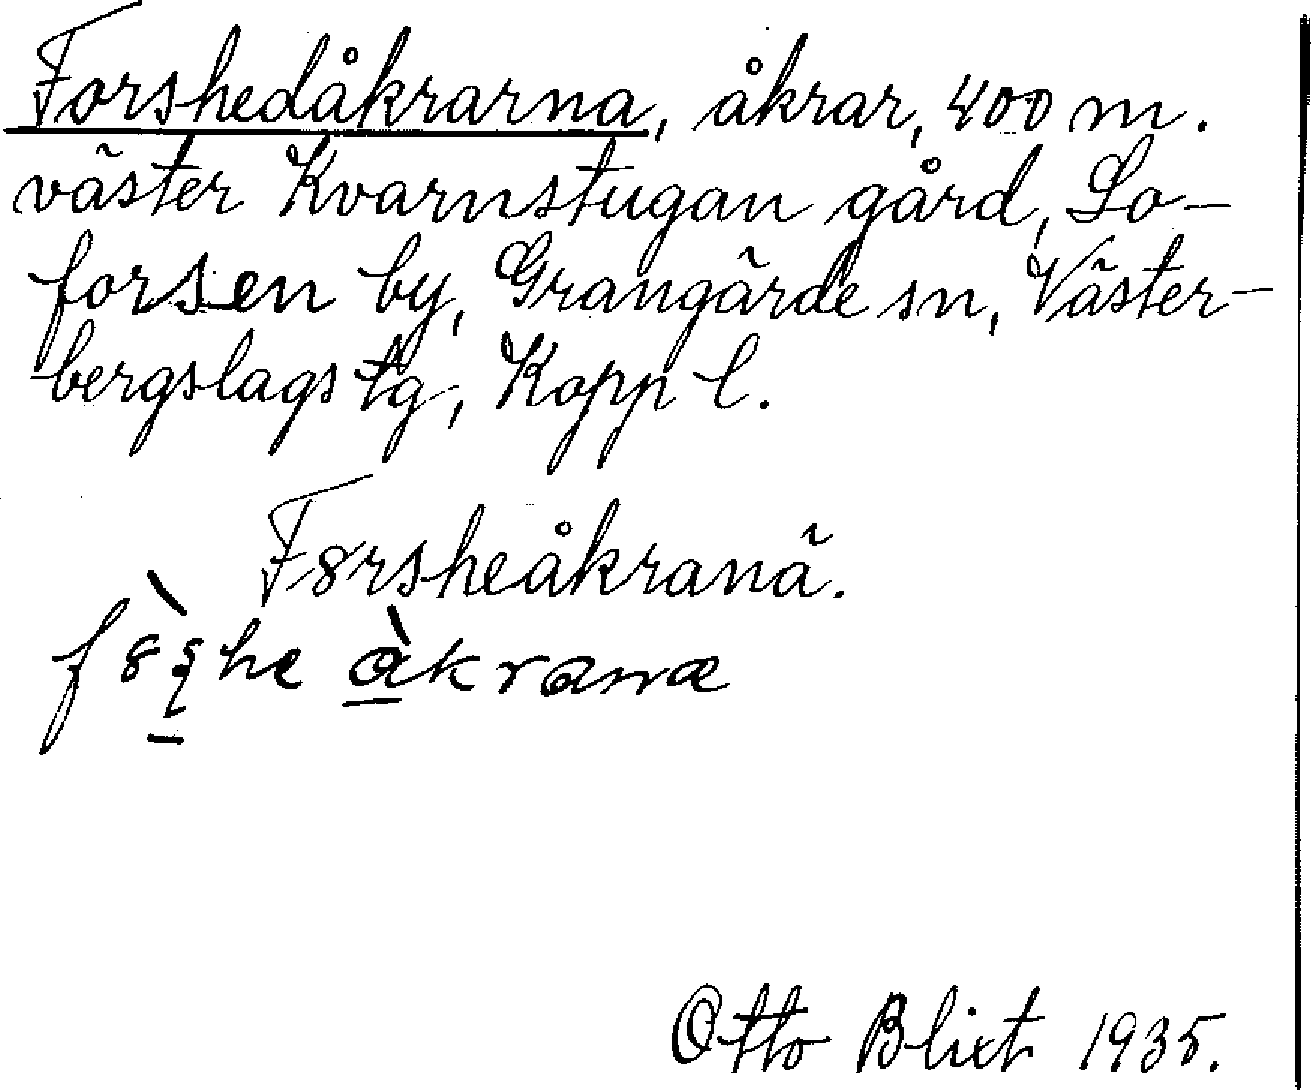 Forshedåkrarna, åkrar, 400 m.
väster Kvarnstugan gård, Lo-
forsen by, Grangärde sn, Väster-
bergslags tg, Kopp l.
F8rsheåkranä.
f8̀ʂhe å̀kranæ
Otto Blixt 1935.